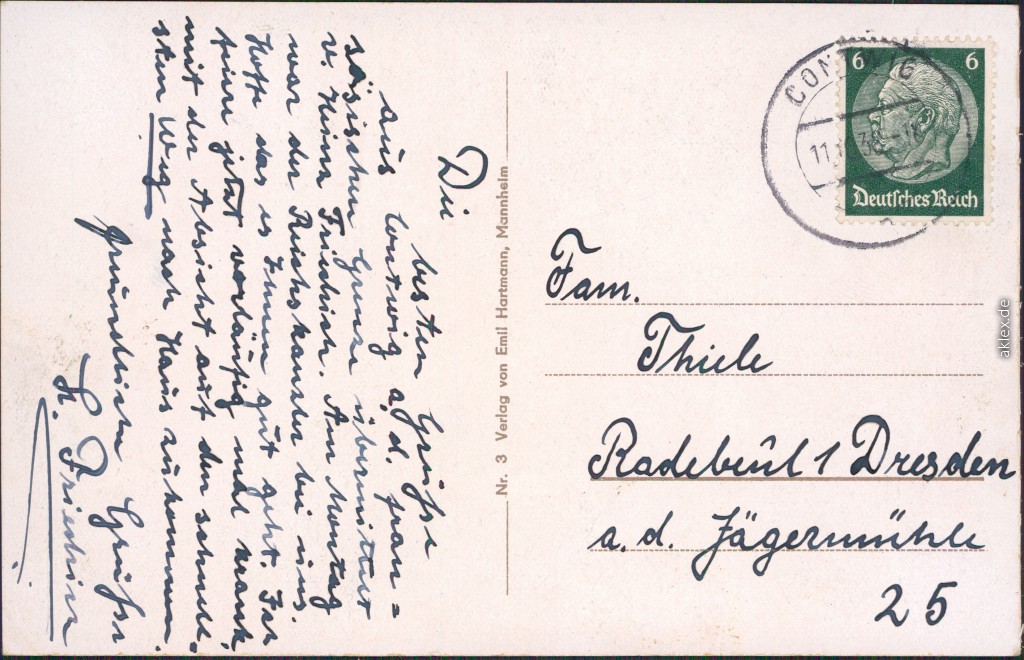 Die
besten Grüsse
aus Contwig a. d. fran=
zösischen Grenze übermittet
Am Montag
war der Reichskanzler bei uns.
Hoffe das es Ihnen gut geht. Ich
jetzt vorläufig und krank
mit der Absicht auf dem schnell-
sten Weg nach Haus zukommen.
freundliche Grüsse
Nr. 3 Verlag von Emil Hartmann, Mannheim
CONTWIG
11.
6 6
Deutsches Reich
Fam.
Thiele
Radebeul 1 Dresden
a. d. Jägermühle
25
aklex.de